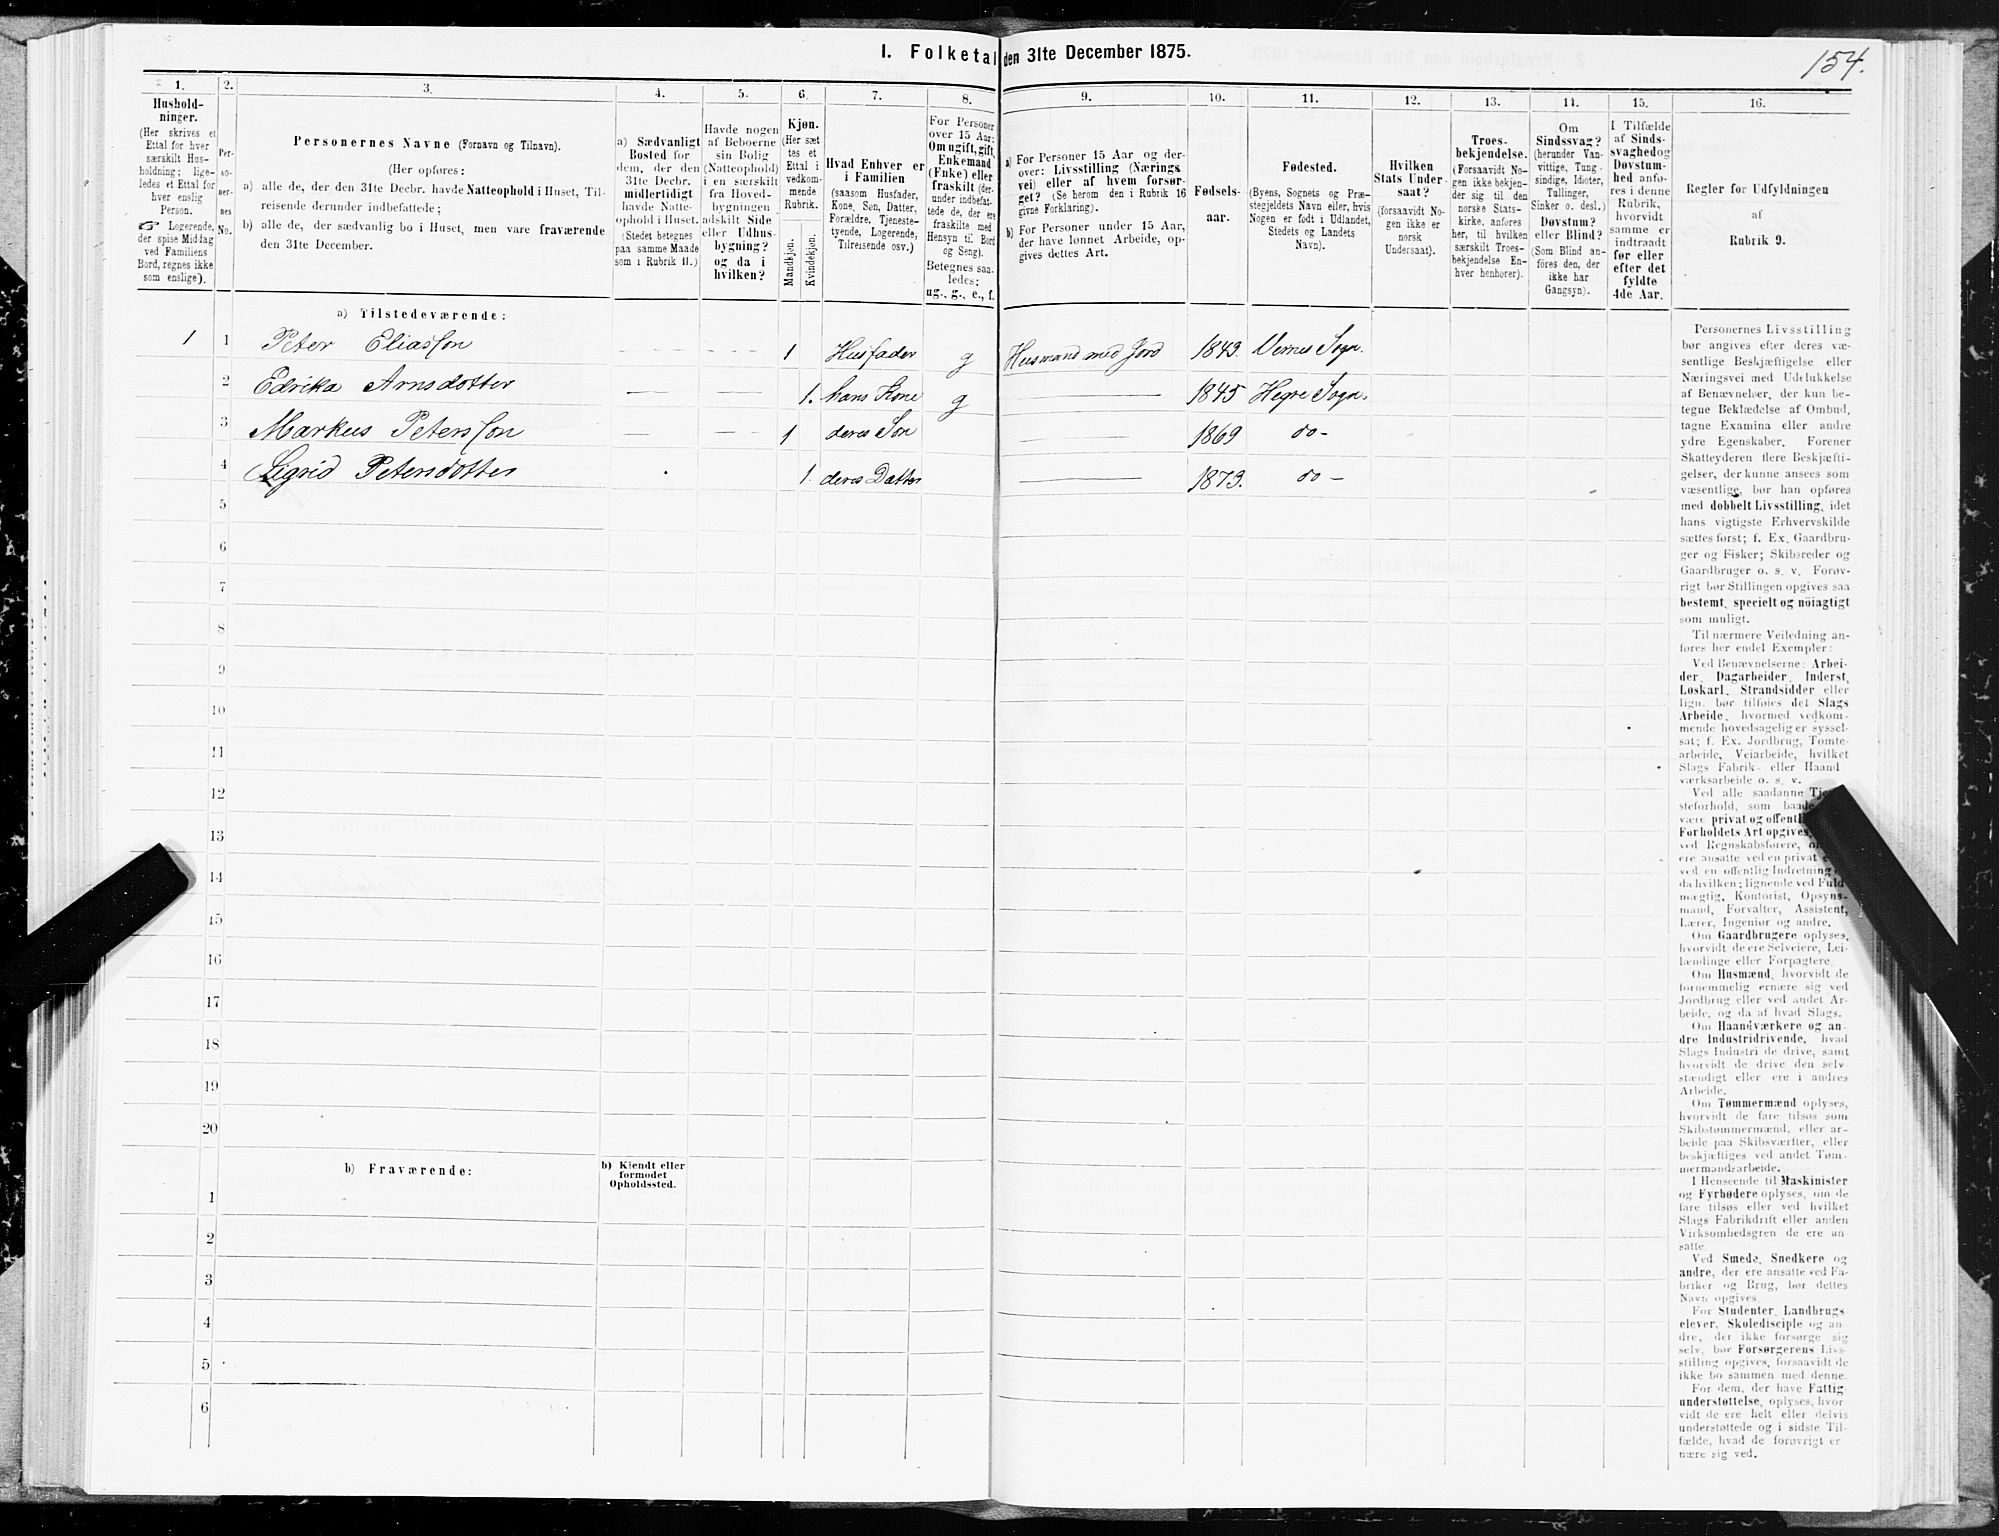 1. Folketal den 31te December 1875.
154.
1.
2.
3.
4.
5.
6.
7.
8.
9.
10.
11.
12.
13.
14.
15.
16.
Hushold-
ninger.
(Her skrives et
Ettal for hver
særskilt Hus-
holdning; lige-
ledes et Ettal for
hver enslig
Person.
☞ Logerende,
der spise Middag
ved Familiens
Bord, regnes ikke
som enslige).
Per-
so-
ner-
nes
No.
Personernes Navne (Fornavn og Tilnavn).
(Her opføres:
a) alle de, der den 31te Decbr. havde Natteophold i Huset, Til-
reisende derunder indbefattede;
b) alle de, der sædvanlig bo i Huset, men vare fraværende
den 31te December.
a) Sædvanligt
Bosted for
dem, der den
31te Decbr.
midlertidigt
havde Natte-
ophold i Huset.
(Stedet betegnes
paa samme Maade
som i Rubrik 11.)
Havde nogen
af Beboerne
sin Bolig
(Natteophold)
i en særskilt
fra Hoved-
bygningen
adskilt Side
eller Udhus-
bygning?
og da i
hvilken?
Kjøn.
(Her sæt
tes et
Ettal i
vedkom-
mende
Rubrik.
Mandkjøn.
Kvindekjøn.
Hvad Enhver er
i Familien
(saasom Husfader,
Kone, Søn, Datter,
Forældre, Tjeneste-
tyende, Logerende,
Tilreisende osv.)
For Personer
over 15 Aar:
Om ugift, gift,
Enkemand
(Enke) eller
fraskilt (der-
under indbefat-
tede de, der ere
fraskilte med
Hensyn til Bord
og Seng).
Betegnes saa-
ledes:
ug., g., e., f.
a) For Personer 15 Aar og der-
over: Livsstilling (Nærings
vei) eller af hvem forsør-
get? (Se herom den i Rubrik 16
givne Forklaring).
b) For Personer under 15 Aar,
der have lønnet Arbeide, op-
gives dettes Art.
Fødsels-
aar.
Fødested.
(Byens, Sognets og Præ-
stegjeldets Navn eller, hvis
Nogen er født i Udlandet,
Stedets og Landets
Navn).
Hvilken
Stats Under-
saat?
(forsaavidt No-
gen ikke er
norsk
Undersaat).
Troes-
bekjendelse.
(Forsaavidt No-
gen ikke bekjen-
der sig til den
norske Stats-
kirke, anføres
her, til hvilken
særskilt Troes-
bekjendelse En-
hver henhører).
Om
Sindssvag?
(herunder Van-
vittige, Tung-
sindige, Idioter,
Tullinger,
Sinker o. desl.)
Døvstum?
eller Blind?
(Som Blind an-
føres den, der
ikke har
Gangsyn).
I Tilfælde
af Sinds-
svaghed og
Døvstum-
hed anfø-
res i denne
Rubrik,
hvorvidt
samme er
indtraadt
før eller
efter det
fyldte
4de Aar.
Regler for Udfyldningen
af
Rubrik 9.
a) Tilstedeværende:
1 1 Peter Eliasson 1 Husfader g Husmand med Jord 1843. Vernes Sogn.
2 Edrika Arnsdotter 1. hans Kone g 1845 Hegre Sogn.
3 Markus Petersson 1 deres Søn 1869 do -
4 Sigrid Petersdotter 1. deres Datter 1873. do -
5
6
7
8
9
10
11
12
13
14
15
16
17
18
19
20
b) Fraværende:
b) Kjendt eller
formodet
Opholdssted.
1
2
3
4
5
6
Personernes Livsstilling
bør angives efter deres væ-
sentlige Beskjæftigelse eller
Næringsvei med Udelukkelse
af Benævnelser, der kun be-
tegne Beklædelse af Ombud,
tagne Examina eller andre
ydre Egenskaber. Forener
Skatteyderen flere Beskjæfti-
gelser, der kunne ansees som
væsentlige, bør han opføres
med dobbelt Livsstilling, idet
hans vigtigste Erhvervskilde
sættes først; f. Ex. Gaardbru-
ger og Fisker; Skibsreder og
Gaardbruger o. s. v. Forøv-
rigt bør Stillingen opgives saa
bestemt, specielt og nöiagtigt
som muligt.
Til nærmere Veiledning an-
føres her endel Exempler:
Ved Benævnelserne: Arbei-
der, Dagarbeider, Inderst,
Løskarl, Strandsidder eller
lign. bør tilføies det Slags
Arbeide, hvormed vedkom-
mende hovedsagelig er syssel-
sat; f. Ex. Jordbrug, Tomte-
arbeide, Veiarbeide, hvilket
Slags Fabrik- eller Haand-
værksarbeide o. s. v.
Ved alle saadanne
steforhold, som baade
være privat og
Forholdets Art opgives,
ved Regnskabsførere,
ere ansatte ved en privat
ved en offentlig Indretning
da hvilken; lignende ved Fuld-
mægtig, Kontorist, Opsyns-
mand, Forvalter, Assistent,
Lærer, Ingeniør og andre.
Om Gaardbrugere oplyses,
hvorvidt de ere Selveiere, Lei-
lændinge eller Forpagtere.
Om Husmænd, hvorvidt de
fornemmelig ernære sig ved
Jordbrug eller ved andet Ar-
beide, og da af hvad Slags.
Om Haandværkere og an-
dre Industridrivende, hvad
Slags Industri de drive, samt
hvorvidt de drive den selv-
stændigt eller ere i andres
Arbeide.
Om Tømmermænd oplyses,
hvorvidt de fare tilsøs som
Skibstømmermænd, eller ar-
beide paa Skibsværfter, eller
beskjæftiges ved andet Tøm-
mermandsarbeide.
I Henseende til Maskinister
og Fyrbødere oplyses, om de
fare tilsøs eller ved hvilket
Slags Fabrikdrift eller anden
Virksomhedsgren de ere an-
satte.
Ved Smede, Snedkere og
andre, der ere ansatte ved Fa-
briker og Brug, bør dettes
Navn opgives.
For Studenter, Landbrugs-
elever, Skoledisciple og an-
dre, der ikke forsørge sig
selv, bør Forsørgerens Livs-
stilling opgives, forsaavidt de
ikke bo sammen med denne.
For dem, der have Fattig-
understøttelse, oplyses, hvor
vidt de ere helt eller delvis
understøttede og i sidste Til-
fælde, hvad de forøvrigt er-
nære sig ved.